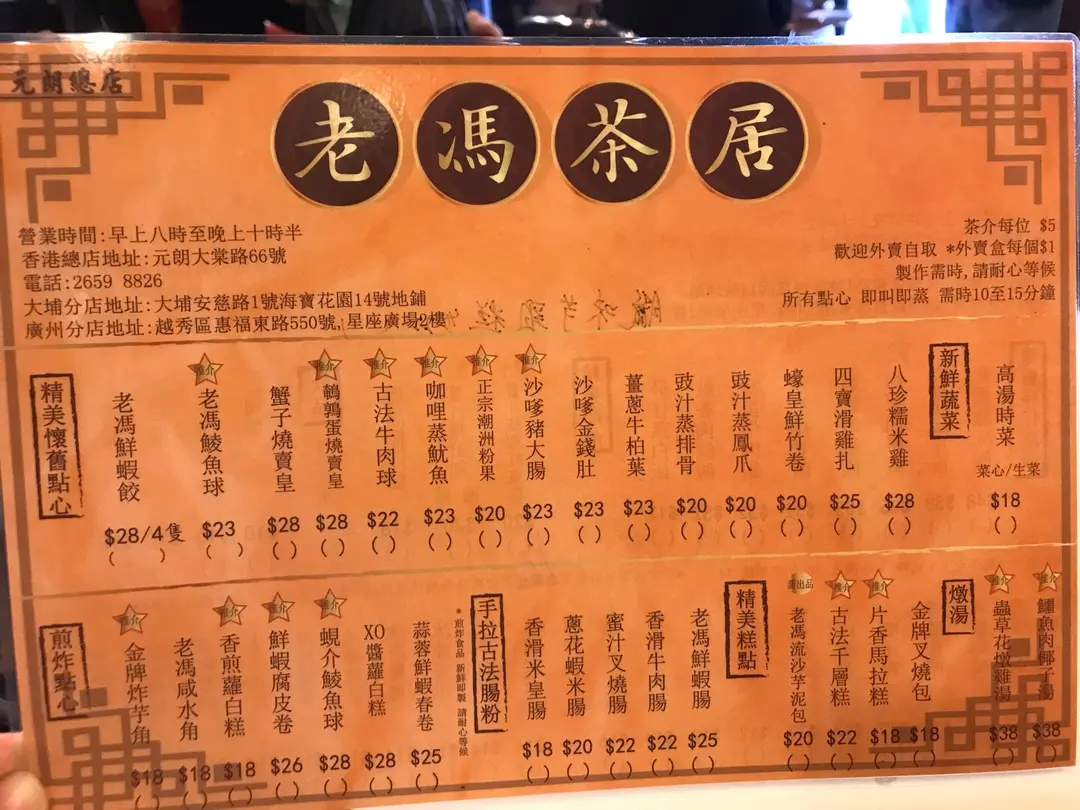 元朗總店
老馮茶居
營業時間:早上八時至晚上十時半
香港總店地址:元朗大棠路66號
電話:2659 8826
大埔分店地址:大埔安慈路1號海寶花園14號地鋪
廣州分店地址:越秀區惠福東路550號,星座廣場2樓
茶介每位 $5
歡迎外賣自取 *外賣盒每個$1
製作需時,請耐心等候
所有點心 即叫即蒸 需時10至15分鐘
精美懷舊點心
老馮鮮蝦餃 $28/4隻 ( )
推介 老馮鯪魚球 $23 ( )
蟹子燒賣皇 $28 ( )
推介 鵪鶉蛋燒賣皇 $28 ( )
推介 古法牛肉球 $22 ( )
推介 咖哩蒸魷魚 $23 ( )
推介 正宗潮洲粉果 $20 ( )
推介 沙嗲豬大腸 $23 ( )
沙嗲金錢肚 $23 ( )
薑蔥牛柏葉 $23 ( )
豉汁蒸排骨 $20 ( )
豉汁蒸鳳爪 $20 ( )
蠔皇鮮竹卷 $20 ( )
四寶滑雞扎 $25 ( )
八珍糯米雞 $28 ( )
新鮮蔬菜
高湯時菜 菜心/生菜 $18 ( )
煎炸點心
推介 金牌炸芋角 $18 ( )
老馮咸水角 $18 ( )
推介 香煎蘿白糕 $18 ( )
推介 鮮蝦腐皮卷 $26 ( )
推介 蜆介鯪魚球 $28 ( )
XO醬蘿白糕 $28 ( )
蒜蓉鮮蝦春卷 $25 ( )
*煎炸食品 新鮮即製 請耐心等候
手拉古法腸粉
香滑米皇腸 $18 ( )
蔥花蝦米腸 $20 ( )
蜜汁叉燒腸 $22 ( )
香滑牛肉腸 $22 ( )
老馮鮮蝦腸 $25 ( )
精美糕點
新出品 老馮流沙芋泥包 $20 ( )
推介 古法千層糕 $22 ( )
推介 片香馬拉糕 $18 ( )
金牌叉燒包 $18 ( )
燉湯
推介 蟲草花燉雞湯 $38 ( )
推介 鱷魚肉椰子湯 $38 ( )